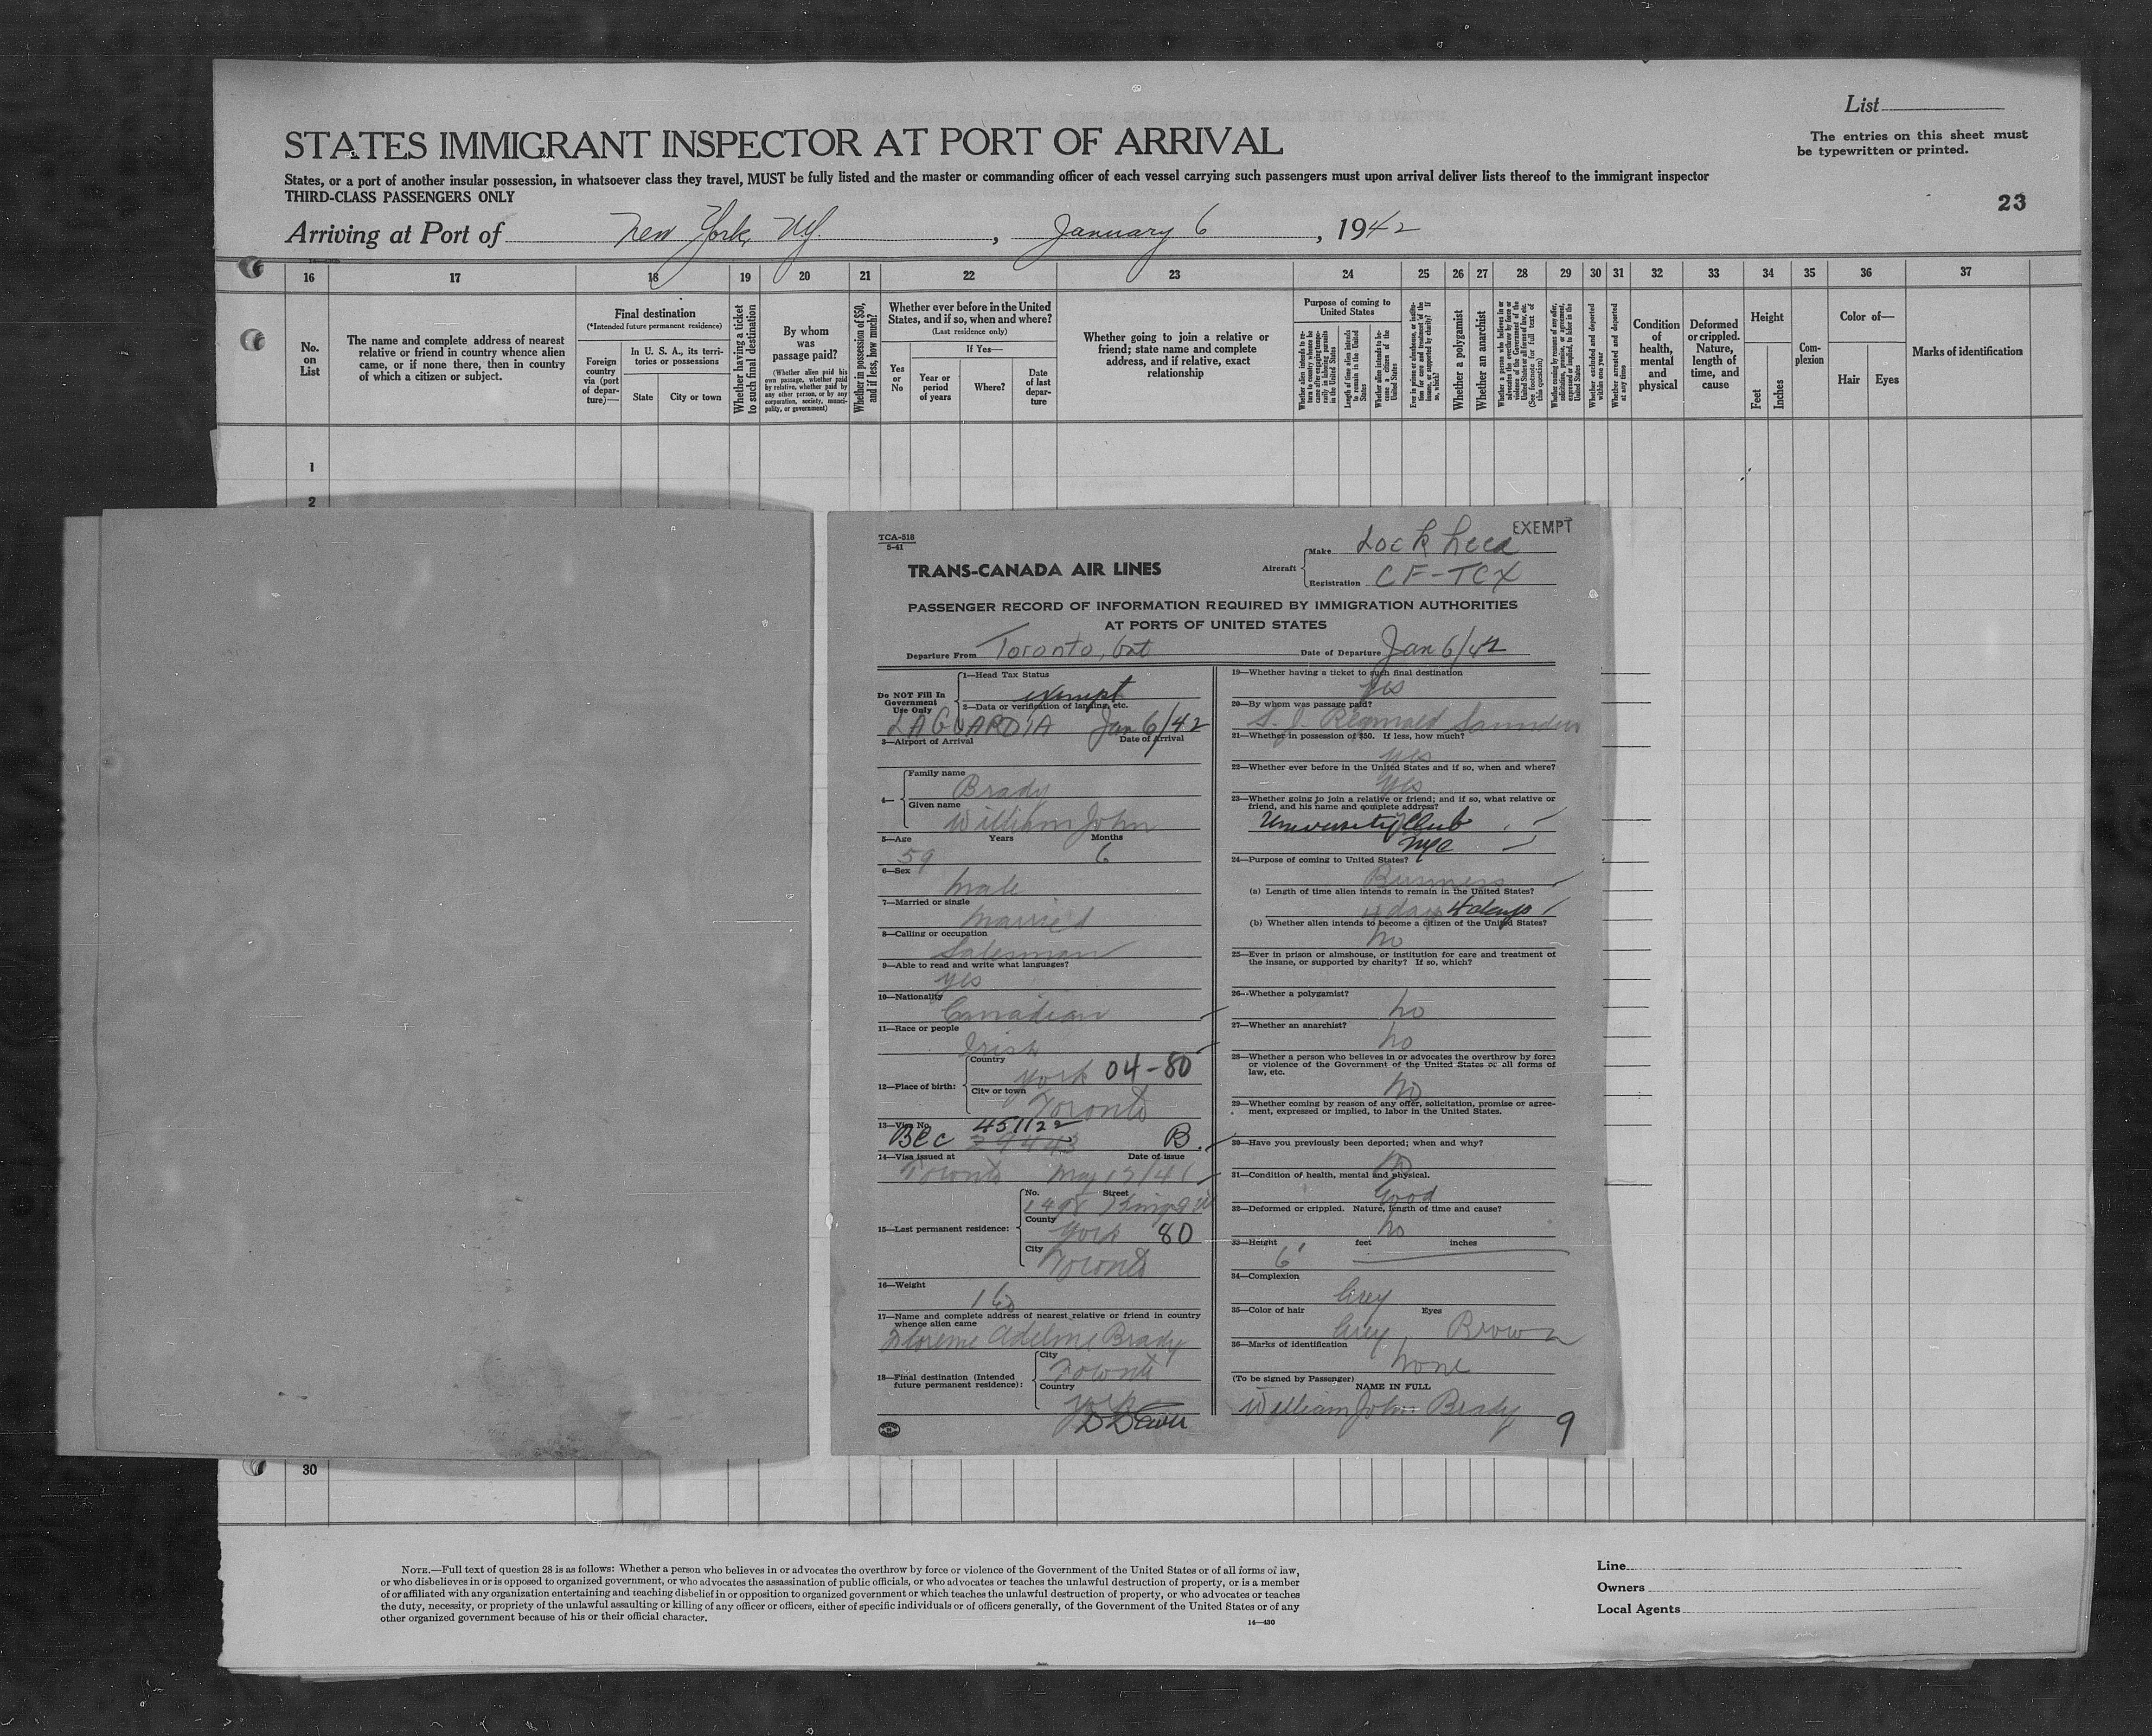 List
STATES IMMIGRANT INSPECTOR AT PORT OF ARRIVAL
The entries on this sheet must
be typewritten or printed.
States, or a port of another insular possession, in whatsoever class they travel, MUST be fully listed and the master or commanding officer of each vessel carrying such passengers must upon arrival deliver lists thereof to the immigrant inspector
THIRD-CLASS PASSENGERS ONLY
23
Arriving at Port of New York, NY. , January 6 , 1942
16 17 18 19 20 21 22 23 24 25 26 27 28 29 30 31 32 33 34 35 36 37
No. on List
The name and complete address of nearest relative or friend in country whence alien came, or if none there, then in country of which a citizen or subject.
Final destination
(*Intended future permanent residence)
Foreign country via (port of departure)—
In U. S. A., its territories or possessions
State
City or town
Whether having a ticket to such final destination
By whom was passage paid?
(Whether alien paid his own passage, whether paid by relative, whether paid by any other person, or by any corporation, society, municipality, or government)
Whether in possession of $50, and if less, how much?
Whether ever before in the United States, and if so, when and where?
(Last residence only)
Yes or No
If Yes—
Year or period of years
Where?
Date of last departure
Whether going to join a relative or friend; state name and complete address, and if relative, exact relationship
Purpose of coming to United States
Whether alien intends to return to country whence he came after engaging temporarily in laboring pursuits in the United States
Length of time alien intends to remain in the United States
Whether alien intends to become a citizen of the United States
Ever in prison or almshouse, or institution for care and treatment of the insane, or supported by charity? If so, which?
Whether a polygamist
Whether an anarchist
Whether a person who believes in or advocates the overthrow by force or violence of the Government of the United States or all forms of law, etc. (See footnote for full text of this question)
Whether coming by reason of any offer, solicitation, promise, or agreement, expressed or implied, to labor in the United States
Whether excluded and deported within one year
Whether arrested and deported at any time
Condition of health, mental and physical
Deformed or crippled. Nature, length of time, and cause
Height
Feet
Inches
Complexion
Color of—
Hair
Eyes
Marks of identification
1
2
TCA-518
5-41
EXEMPT
TRANS-CANADA AIR LINES
Aircraft
Make Lockheed
Registration CF-TCX
PASSENGER RECORD OF INFORMATION REQUIRED BY IMMIGRATION AUTHORITIES
AT PORTS OF UNITED STATES
Departure From Toronto, Ont
Date of Departure Jan 6/42
Do NOT Fill In Government Use Only
1—Head Tax Status
exempt
2—Data or verification of landing, etc.
LAGUARDIA Jan 6/42
3—Airport of Arrival Date of Arrival
4—
Family name
Brady
Given name
William John
5—Age Years Months
59 6
6—Sex
Male
7—Married or single
Married
8—Calling or occupation
Salesman
9—Able to read and write what languages?
yes
10—Nationality
Canadian
11—Race or people
Irish
12—Place of birth:
Country
York 04-80
City or town
Toronto
13—Visa No. 451122
BCC 29443 B.
14—Visa issued at Date of issue
Toronto May 19/41
15—Last permanent residence:
No. Street
County
York 80
City
Toronto
16—Weight
160
17—Name and complete address of nearest relative or friend in country
whence alien came
Adeline Brady
18—Final destination (Intended
future permanent residence):
City
Toronto
Country
York
19—Whether having a ticket to such final destination
yes
20—By whom was passage paid?
S. J. Reginald Saunders
21—Whether in possession of $50. If less, how much?
yes
22—Whether ever before in the United States and if so, when and where?
yes
23—Whether going to join a relative or friend; and if so, what relative or
friend, and his name and complete address?
University Club
NYC
24—Purpose of coming to United States?
Business
(a) Length of time alien intends to remain in the United States?
4 days 4 days
(b) Whether alien intends to become a citizen of the United States?
no
25—Ever in prison or almshouse, or institution for care and treatment of
the insane, or supported by charity? If so, which?
26—Whether a polygamist?
no
27—Whether an anarchist?
no
28—Whether a person who believes in or advocates the overthrow by force
or violence of the Government of the United States or all forms of
law, etc.
no
29—Whether coming by reason of any offer, solicitation, promise or agree-
ment, expressed or implied, to labor in the United States.
30—Have you previously been deported; when and why?
no
31—Condition of health, mental and physical.
Good
32—Deformed or crippled. Nature, length of time and cause?
no
33—Height feet inches
6'
34—Complexion
Grey
35—Color of hair Eyes
Grey, Brown
36—Marks of identification
none
(To be signed by Passenger)
NAME IN FULL
William John Brady
9
30
NOTE.—Full text of question 28 is as follows: Whether a person who believes in or advocates the overthrow by force or violence of the Government of the United States or of all forms of law,
or who disbelieves in or is opposed to organized government, or who advocates the assassination of public officials, or who advocates or teaches the unlawful destruction of property, or is a member
of or affiliated with any organization entertaining and teaching disbelief in or opposition to organized government or which teaches the unlawful destruction of property, or who advocates or teaches
the duty, necessity, or propriety of the unlawful assaulting or killing of any officer or officers, either of specific individuals or of officers generally, of the Government of the United States or of any
other organized government because of his or their official character.
14—430
Line
Owners
Local Agents